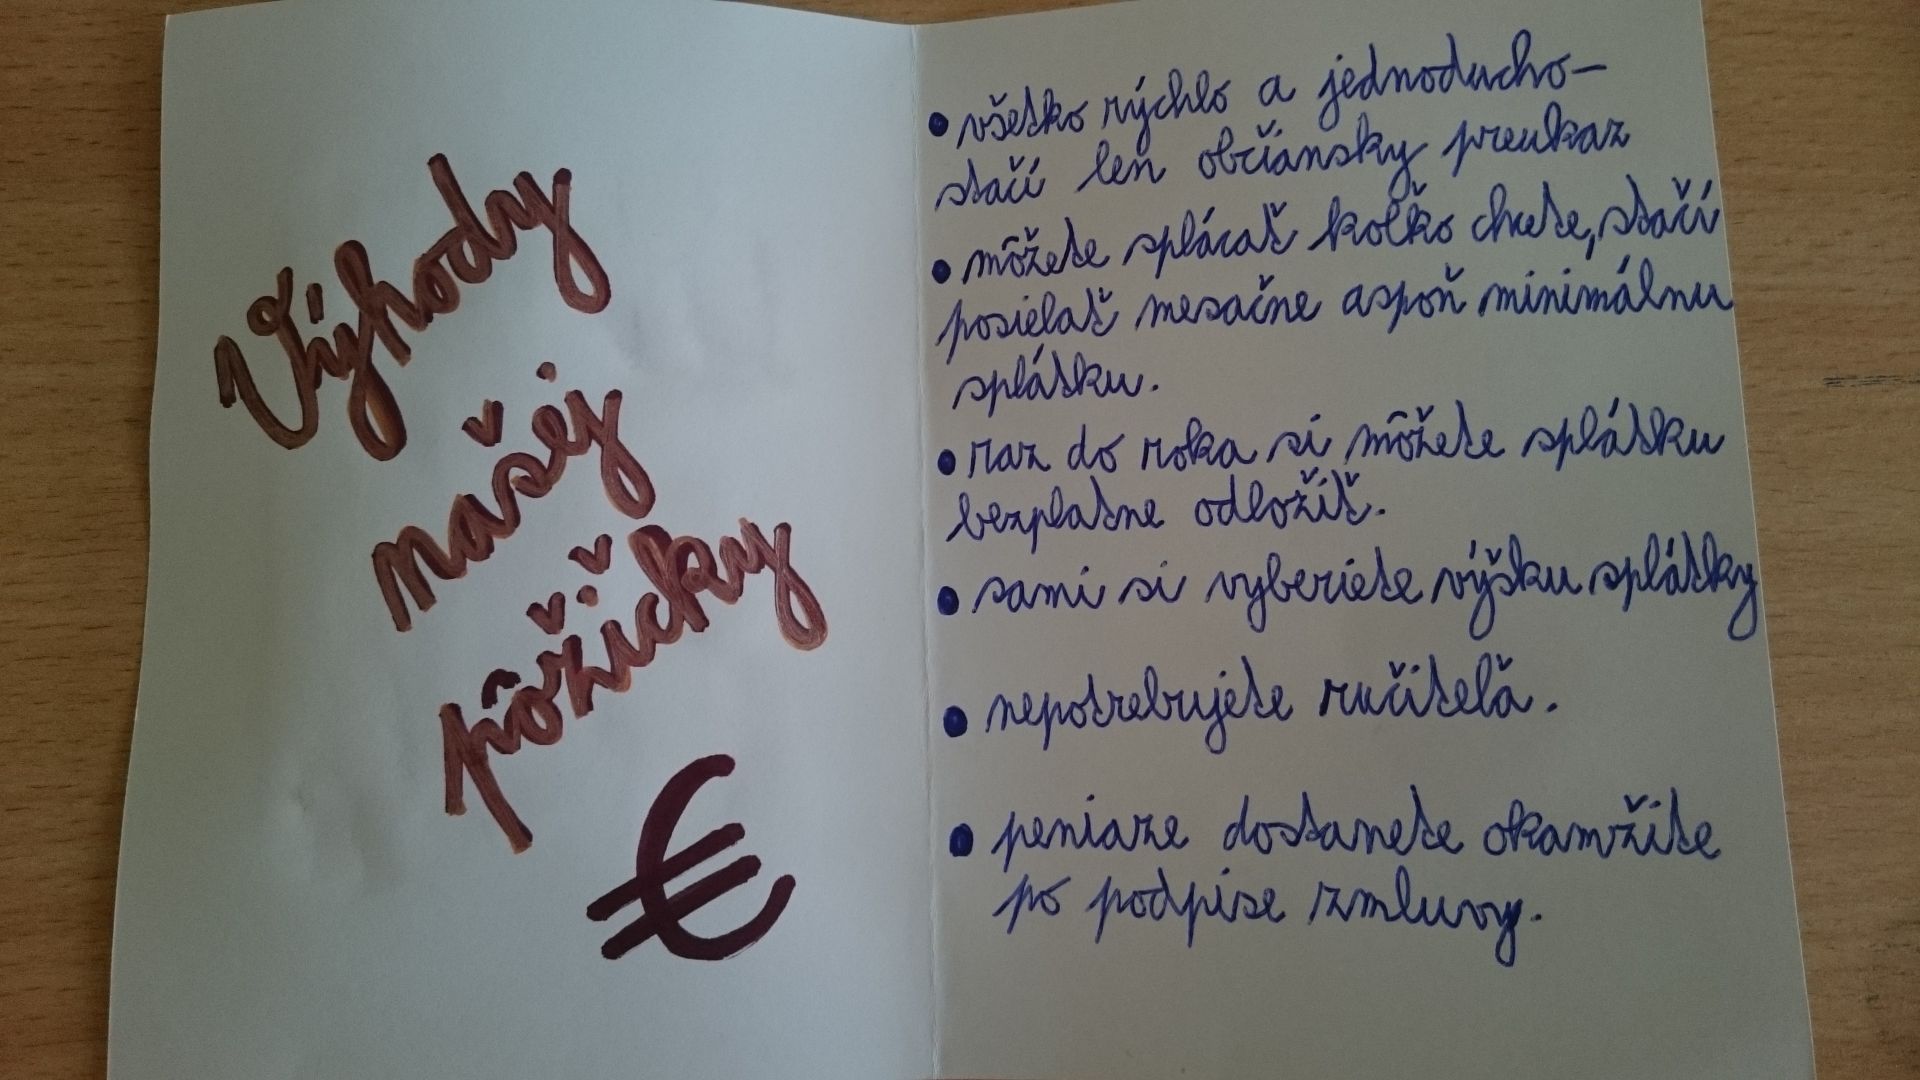 Výhody
našej
pôžičky
€
• všetko rýchlo a jednoducho-
stačí len občiansky preukaz
• môžete splácať koľko chcete, stačí
posielať mesačne aspoň minimálnu
splátku.
• raz do roka si môžete splátku
bezplatne odložiť.
• sami si vyberiete výšku splátky
• nepotrebujete ručiteľa.
• peniaze dostanete okamžite
po podpise zmluvy.